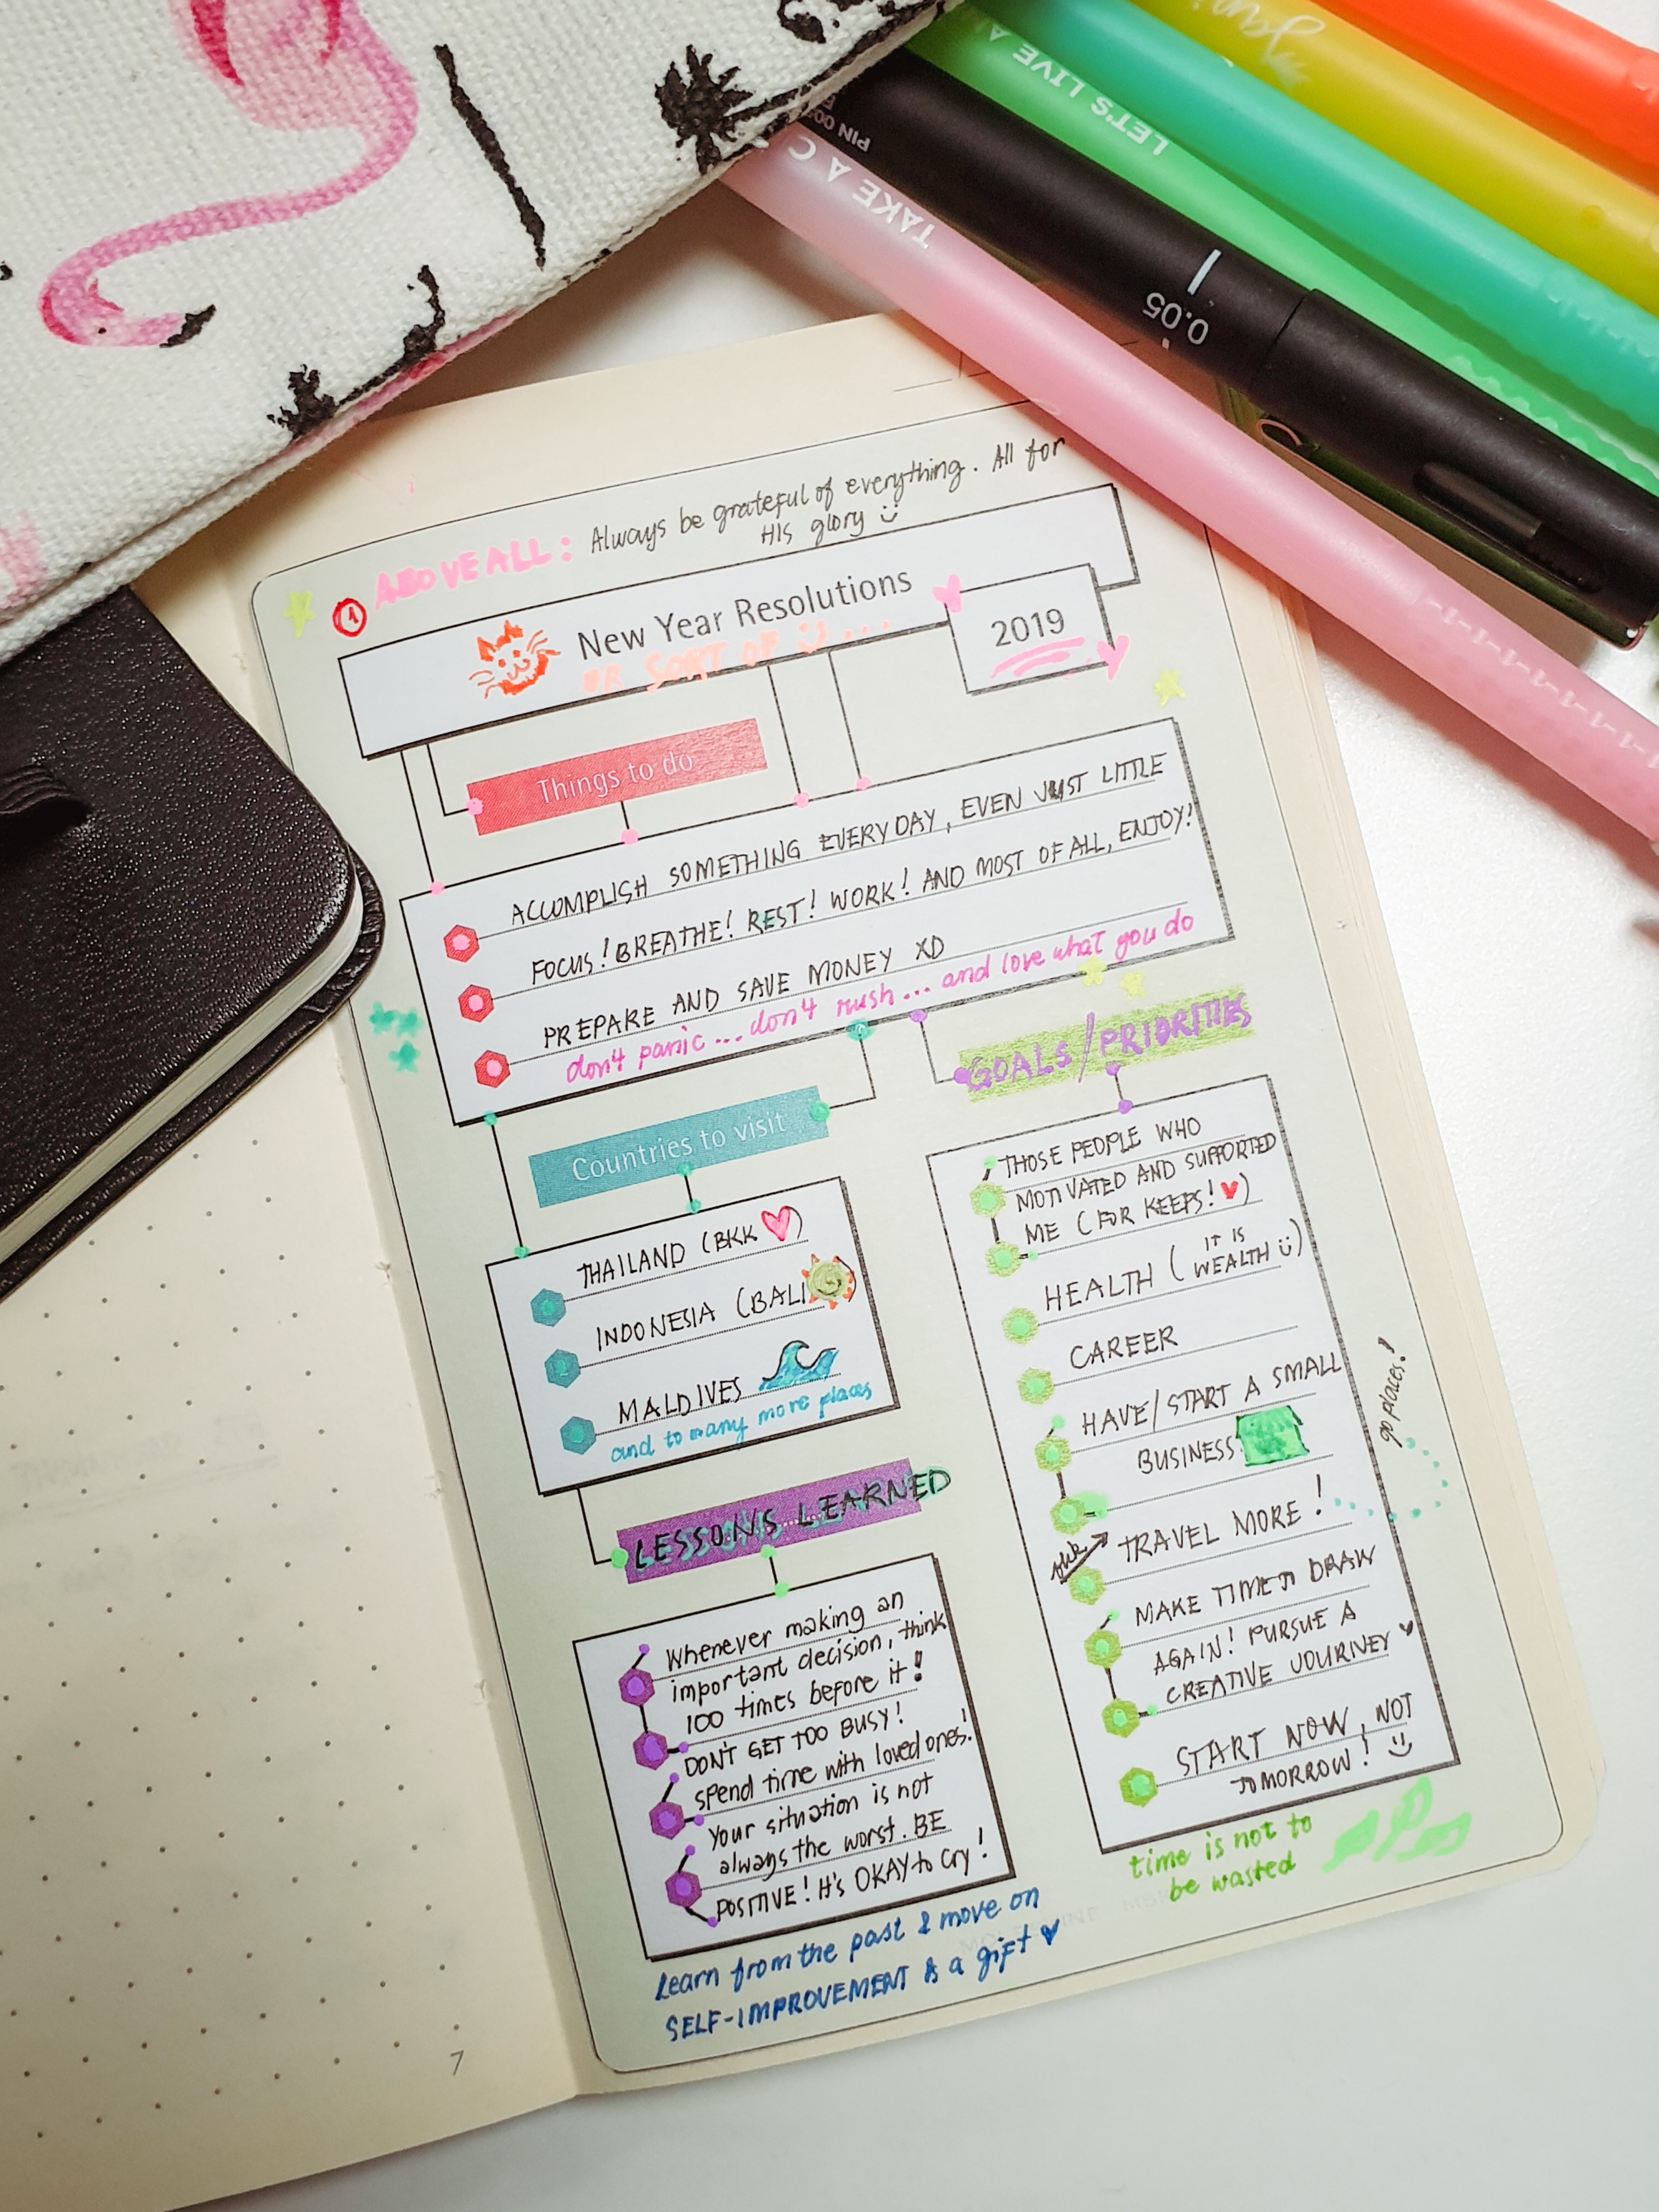 TAKE A C
PIN 00
0.05
LET'S LIVE A
ABOVE ALL: Always be grateful of everything. All for
HIS glory
1
New Year Resolutions
OR SORT OF
2019
Things to do
ACCOMPLISH SOMETHING EVERYDAY, EVEN JUST LITTLE
FOCUS! BREATHE! REST! WORK! AND MOST OF ALL, ENJOY!
PREPARE AND SAVE MONEY XD
don't panic... don't rush... and love what you do
Countries to visit
THAILAND (BKK ♥)
INDONESIA (BALI)
MALDIVES
and to many more places
GOALS/PRIORITIES
THOSE PEOPLE WHO
MOTIVATED AND SUPPORTED
ME (FOR KEEPS! ♥)
HEALTH (IT IS
WEALTH)
CAREER
HAVE/START A SMALL
BUSINESS
go places!
TRAVEL MORE!
MAKE TIME TO DRAW
AGAIN! PURSUE A
CREATIVE JOURNEY
START NOW, NOT
TOMORROW!
time is not to
be wasted
LESSONS LEARNED
Whenever making an
important decision, think
100 times before it!
DON'T GET TOO BUSY!
spend time with loved ones!
Your situation is not
always the worst. BE
POSITIVE! It's OKAY to cry!
Learn from the past & move on
SELF-IMPROVEMENT is a gift
7